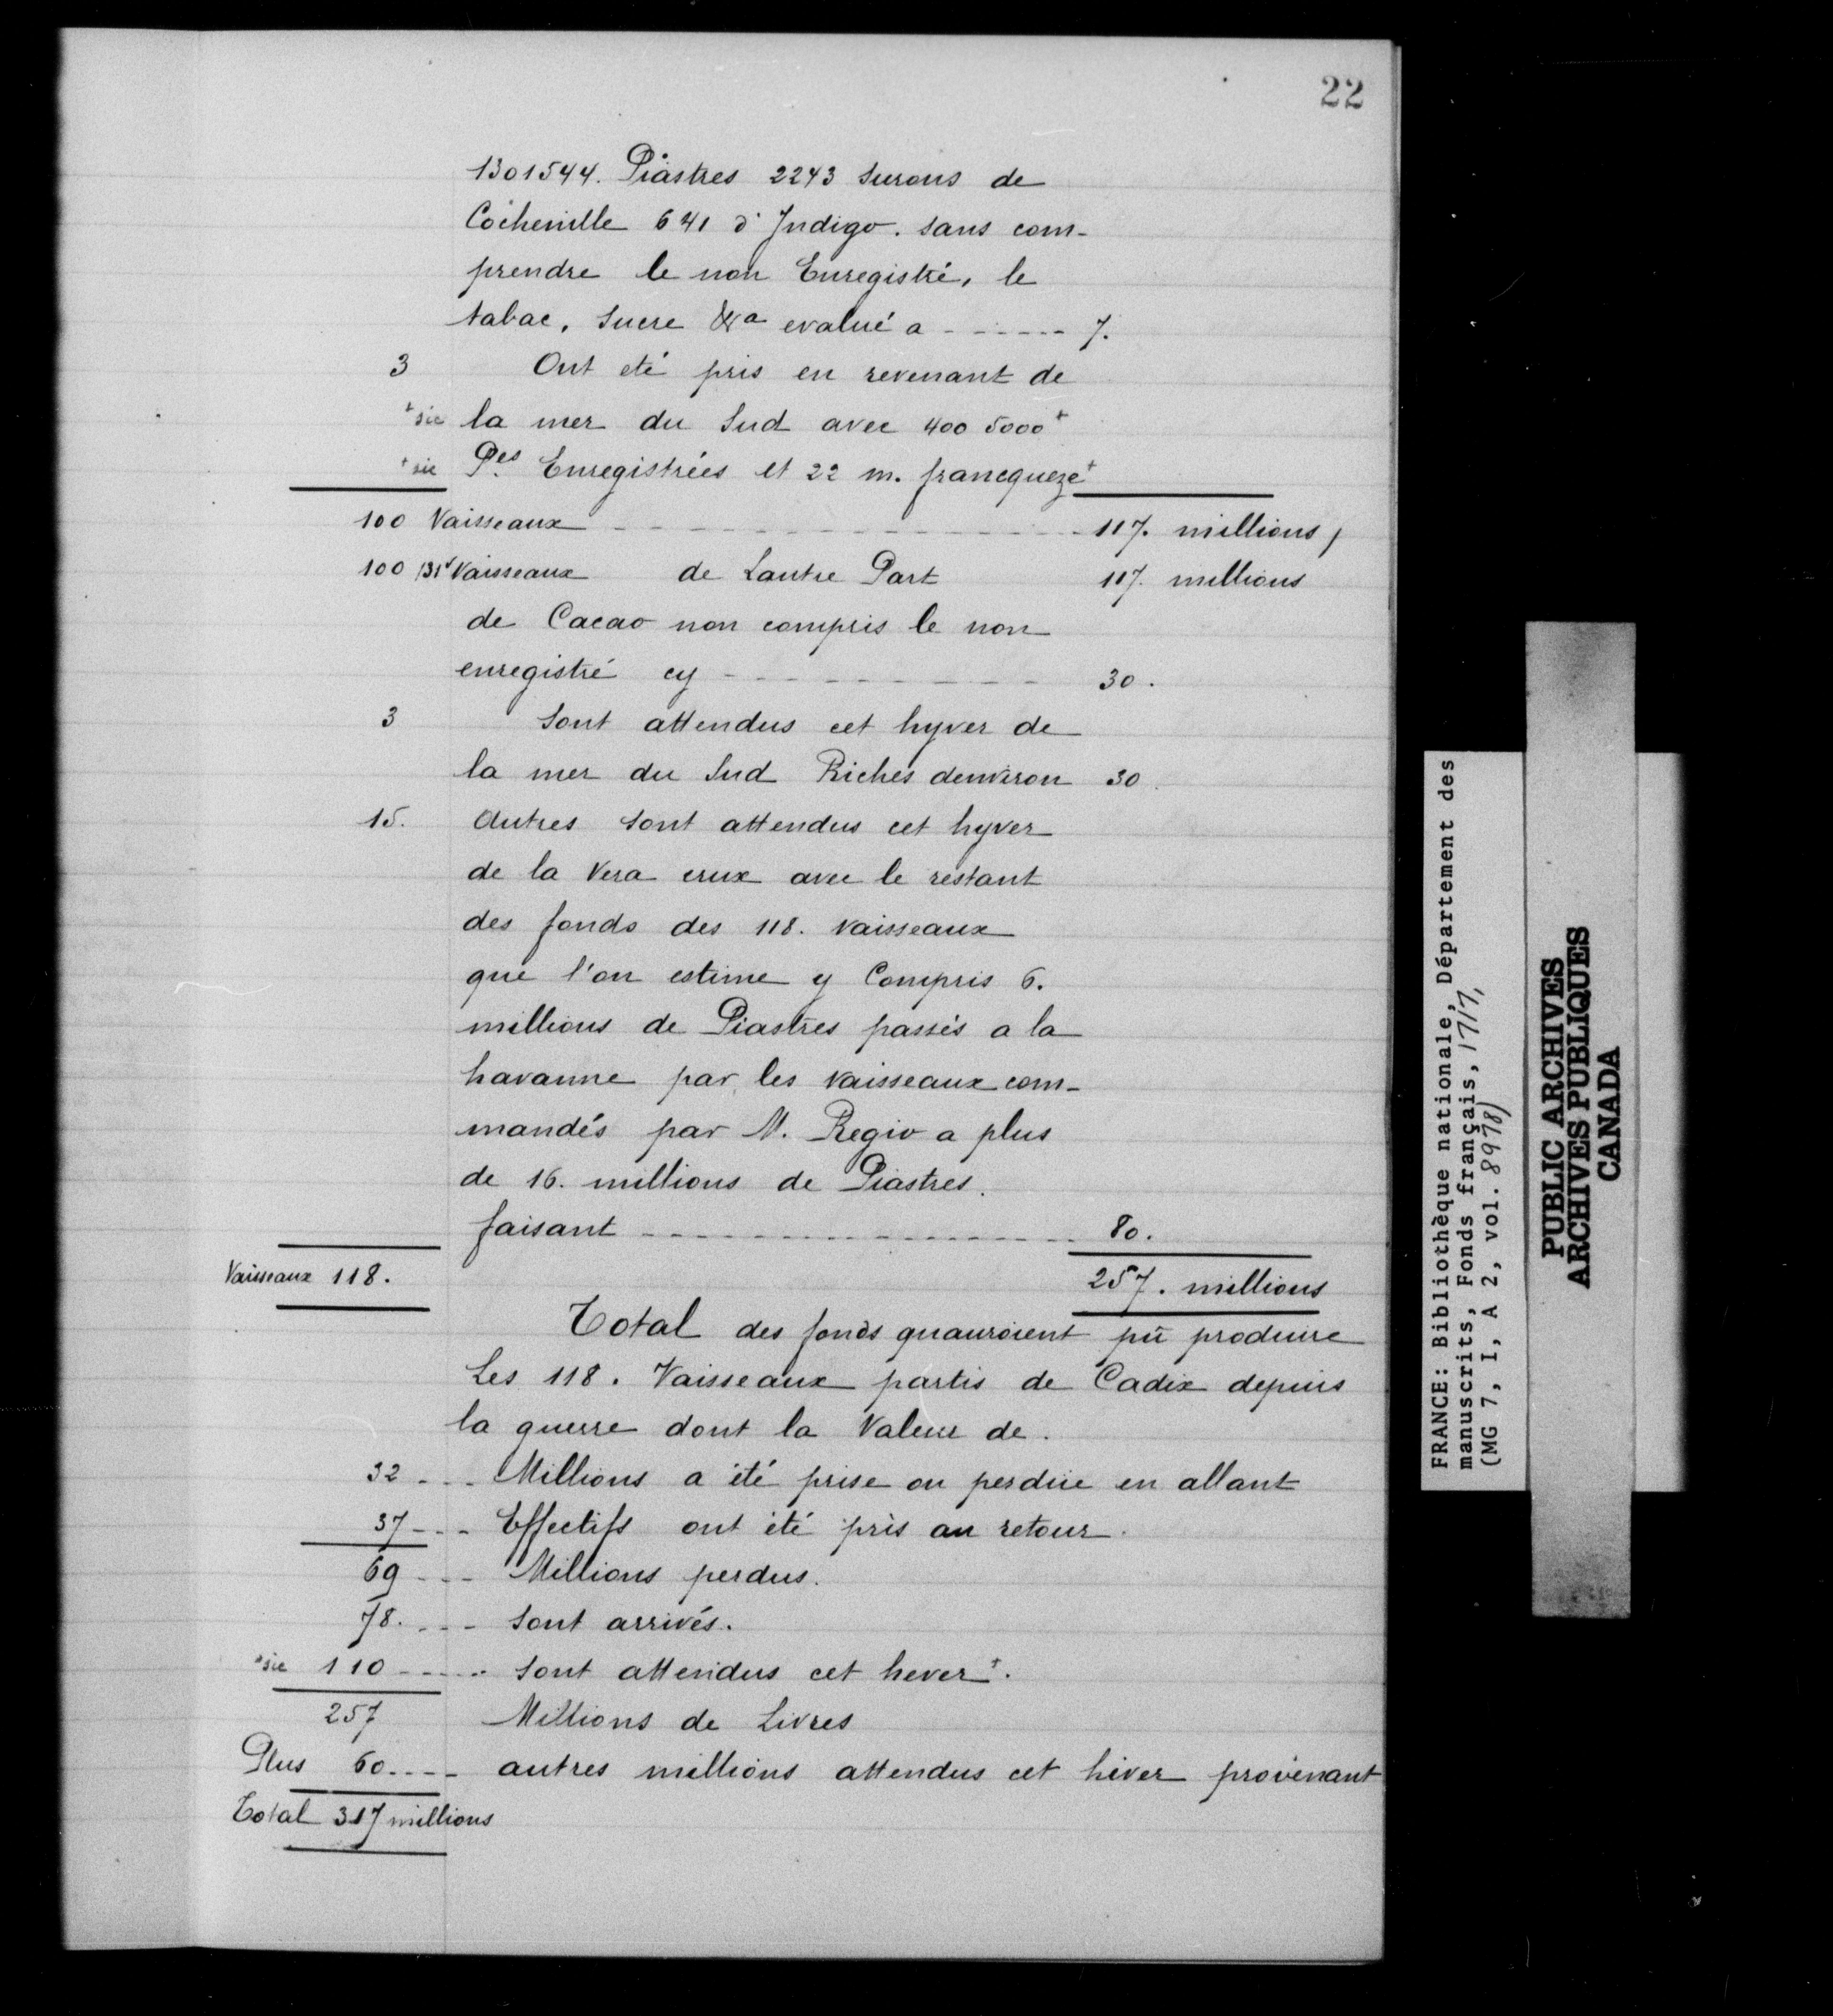 22
1301544. Piastres 2243 surons de
Cochenille 641 d'Indigo. sans com-
prendre le non Enregistré, le
tabac, sucre &a evalué a ------ 7.
3 Ont eté pris en revenant de
+sic la mer du Sud avec 400 5000+
+sic Pes Enregistrées et 22 m. francqueze+
100 Vaisseaux ------ 117. millions,
100 Vaisseaux de Lautre Part 117. millions
de Cacao non compris le non
enregistré cy ------ 30.
3 Sont attendus cet hyver de
la mer du Sud Riches denviron 30.
15. Autres sont attendus cet hyver
de la Vera crux avec le restant
des fonds des 118. vaisseaux
que l'on estime y Compris 6.
millions de Piastres passés a la
havanne par les vaisseaux com-
mandés par M. Regio a plus
de 16. millions de Piastres.
faisant ------ 80.
Vaisseaux 118. 257. millions
Total des fonds quauroient pû produire
Les 118. Vaisseaux partis de Cadix depuis
la guerre dont la Valeur de.
32 --- Millions a été prise ou perdüe en allant
37 --- Effectifs ont été pris au retour.
69 --- Millions perdus.
78. --- Sont arrivés.
+sic 110 ----- sont attendus cet hever+.
257 Millions de Livres
Plus 60 ---- autres millions attendus cet hiver provenant
Total 317 millions
FRANCE: Bibliothèque nationale, Département des
manuscrits, Fonds français, 1717,
(MG 7, I, A 2, vol. 8978)
PUBLIC ARCHIVES
ARCHIVES PUBLIQUES
CANADA